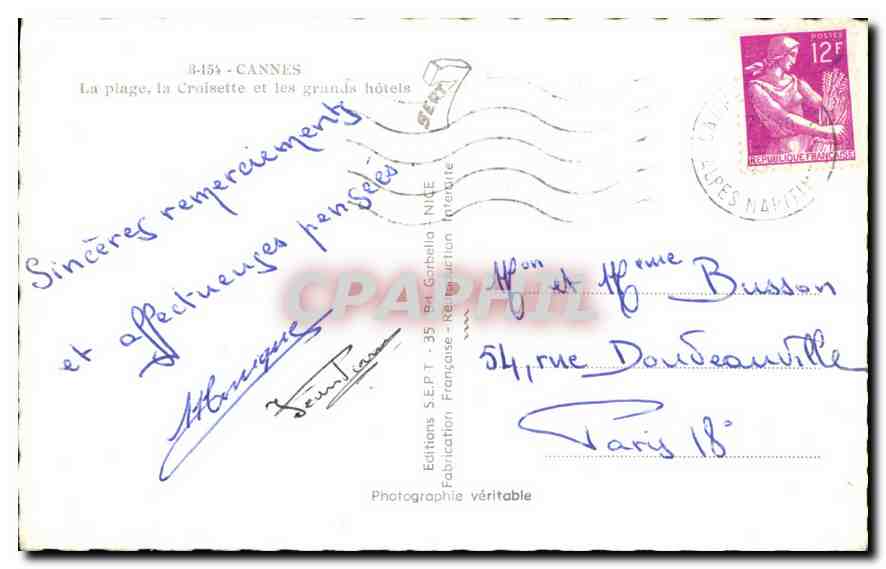 B-154 - CANNES
La plage, la Croisette et les grands hôtels
SEPT
POSTES
12F
REPUBLIQUE FRANÇAISE
ALPES MARITIMES
Sincères remerciements
et affectueuses pensées.
Monique
Jean Pierre
Editions S.E.P.T - 35 Bd. Gorbella - NICE
Fabrication Française - Reproduction Interdite
CPAPHIL
Mon et Meme Busson
54, rue Doudeauville
Paris 18°
Photographie véritable